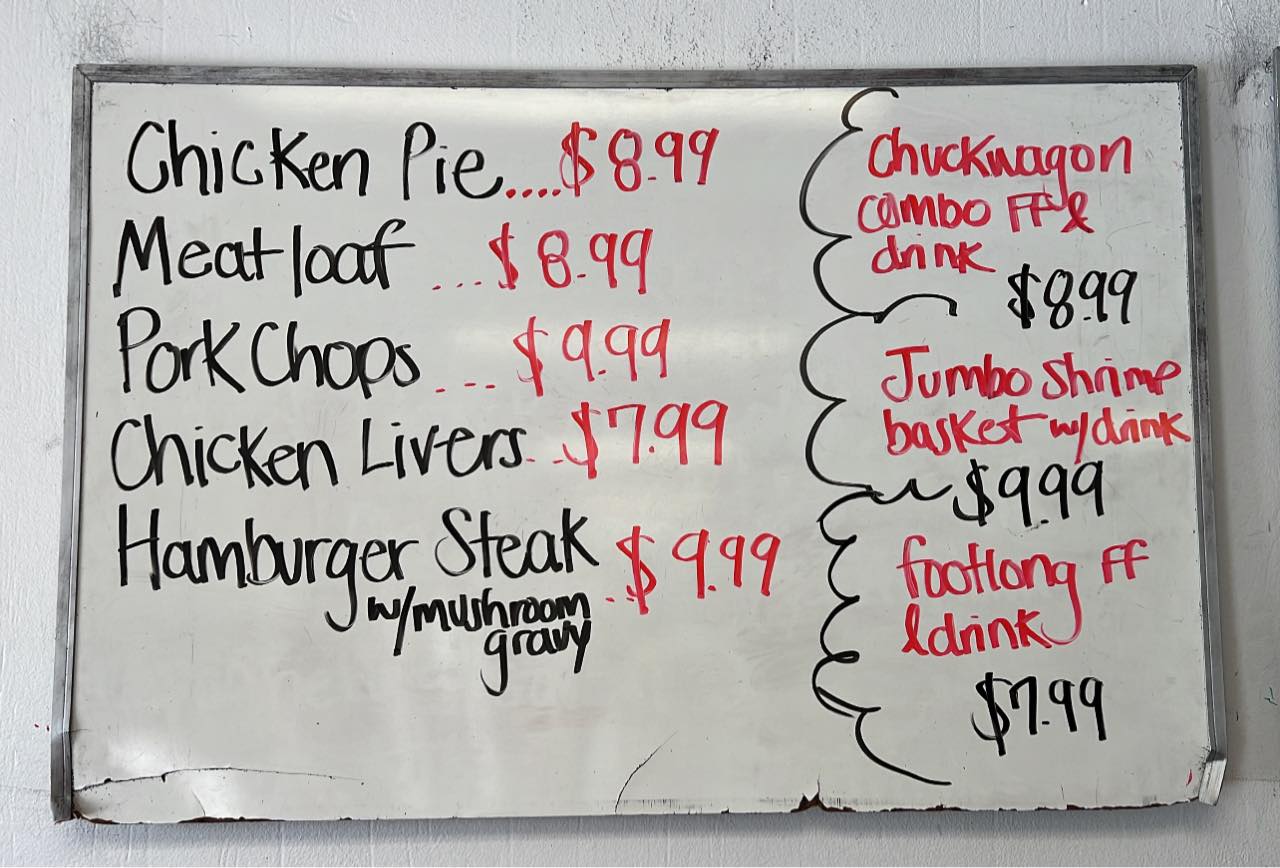 Chicken Pie....$8.99
Meatloaf ...$8.99
Pork Chops ... $9.99
Chicken Livers..$7.99
Hamburger Steak .$9.99
w/mushroom
gravy
Chuckwagon
combo FF &
drink
$8.99
Jumbo Shrimp
basket w/drink
$9.99
footlong FF
& drink
$7.99